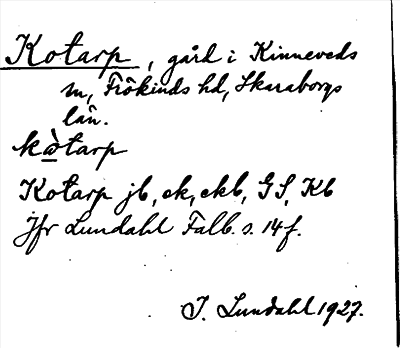 Kotarp, gård i Kinneveds
sn, Frökinds hd, Skaraborgs
län.
kòtarp
Kotarp jb, ek, ekb, GS, Kb
Jfr Lundahl Falb. s. 14 f.
I. Lundahl 1927.